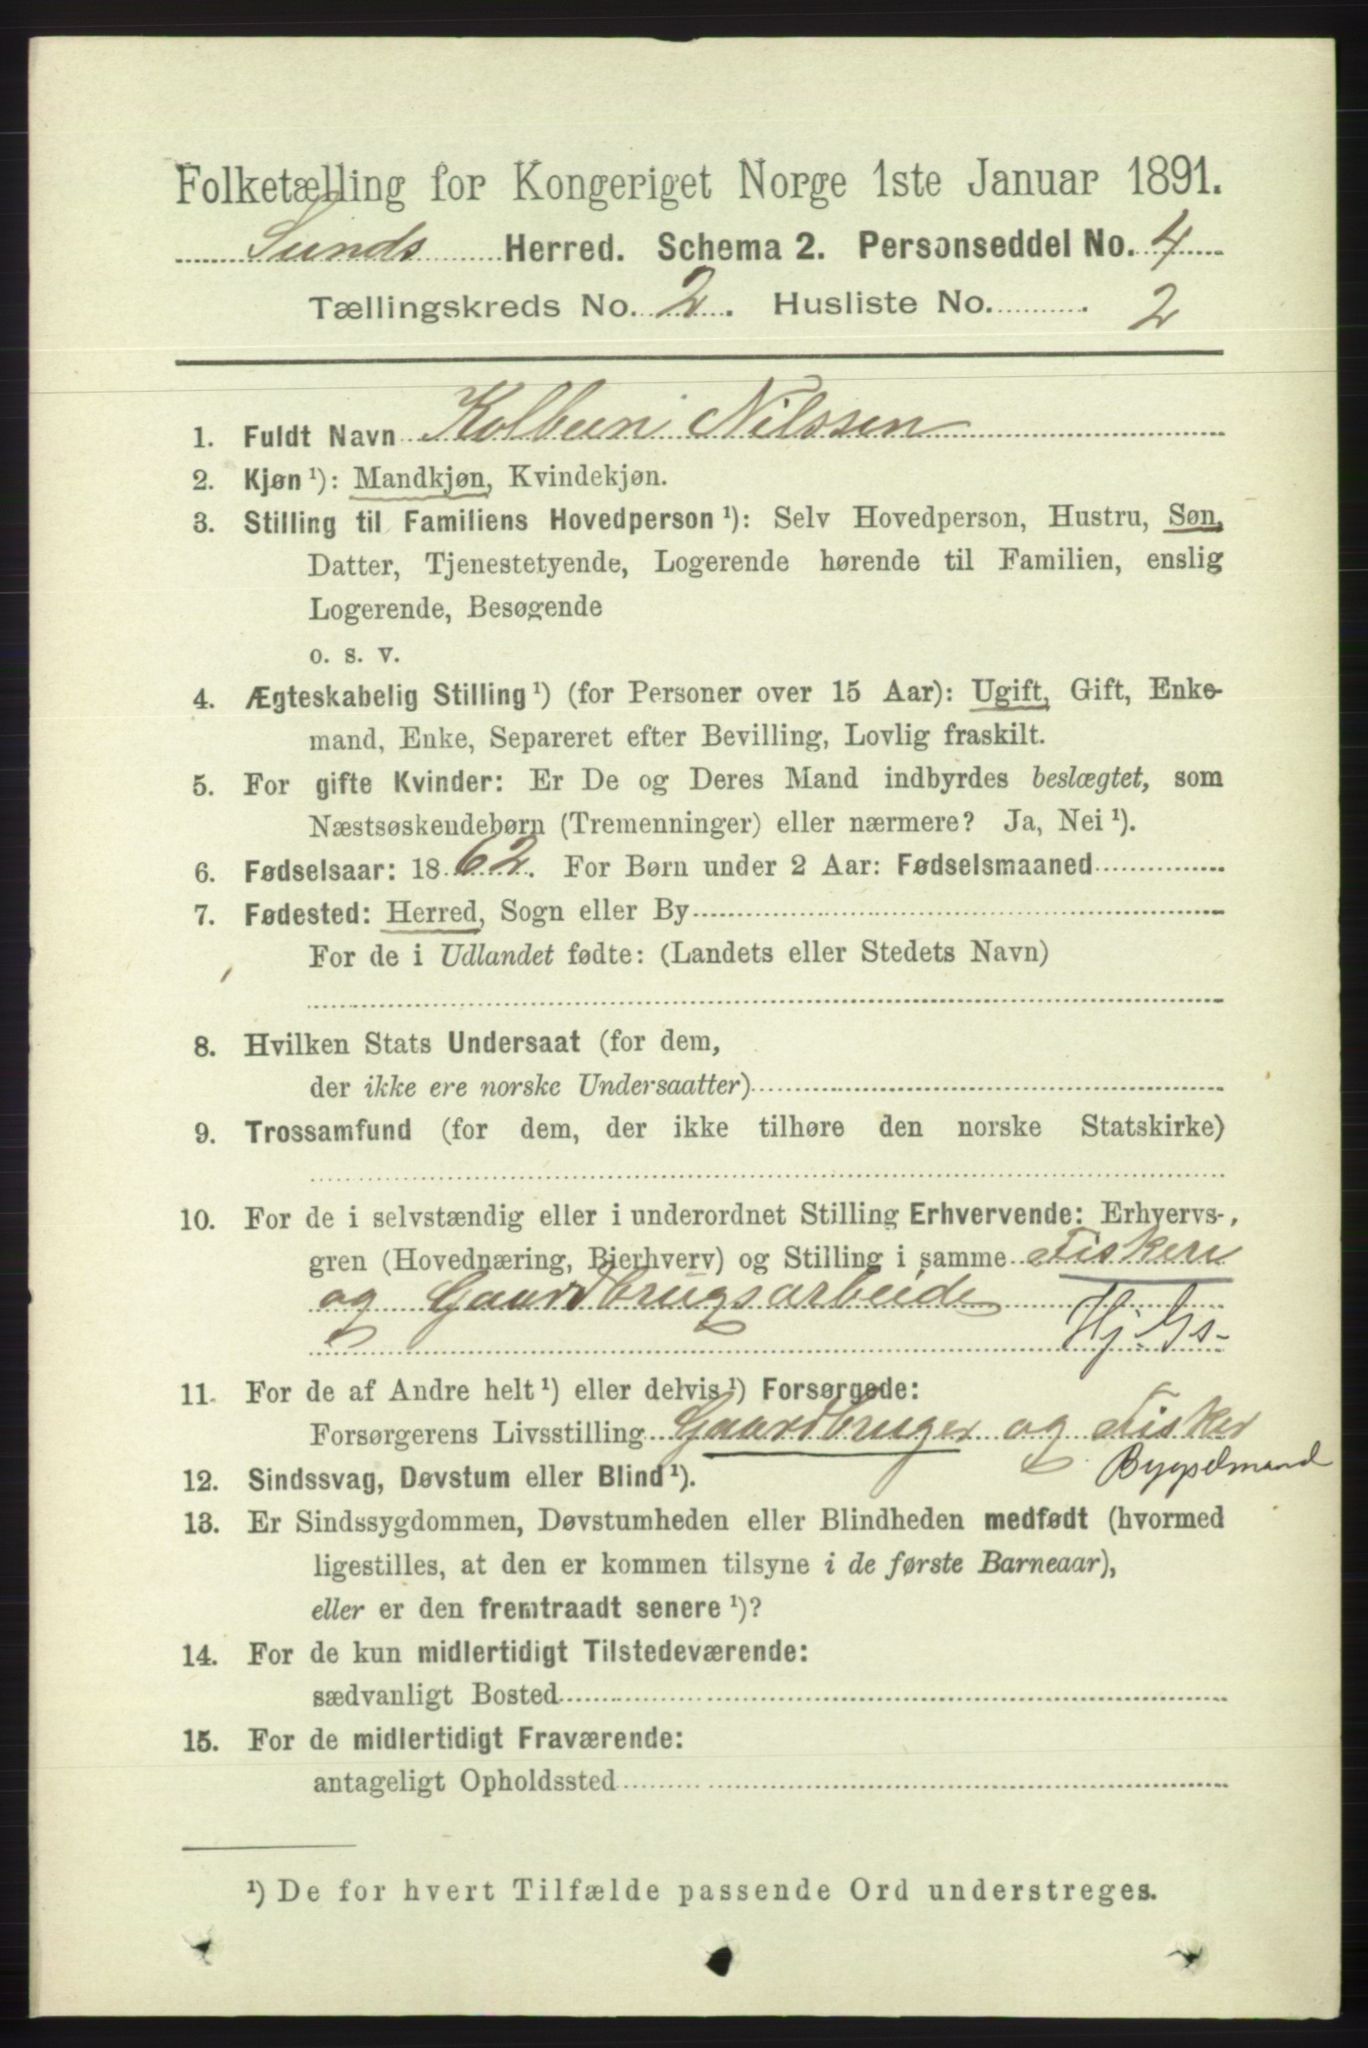 Folketælling for Kongeriget Norge 1ste Januar 1891.
Sunds Herred. Schema 2. Personseddel No. 4
Tællingskreds No. 2. Husliste No. 2
1. Fuldt Navn Kolbein Nilssen
2. Kjøn¹): Mandkjøn, Kvindekjøn.
3. Stilling til Familiens Hovedperson¹): Selv Hovedperson, Hustru, Søn,
Datter, Tjenestetyende, Logerende hørende til Familien, enslig
Logerende, Besøgende
o. s. v.
4. Ægteskabelig Stilling¹) (for Personer over 15 Aar): Ugift, Gift, Enke-
mand, Enke, Separeret efter Bevilling, Lovlig fraskilt.
5. For gifte Kvinder: Er De og Deres Mand indbyrdes beslægtet, som
Næstsøskendebørn (Tremenninger) eller nærmere? Ja, Nei¹).
6. Fødselsaar: 1862. For Børn under 2 Aar: Fødselsmaaned
7. Fødested: Herred, Sogn eller By
For de i Udlandet fødte: (Landets eller Stedets Navn)
8. Hvilken Stats Undersaat (for dem,
der ikke ere norske Undersaatter)
9. Trossamfund (for dem, der ikke tilhøre den norske Statskirke)
10. For de i selvstændig eller i underordnet Stilling Erhvervende: Erhvervs-
gren (Hovednæring, Bierhverv) og Stilling i samme Fiskeri
og Gaardbrugsarbeide
Hj. Gs-
11. For de af Andre helt¹) eller delvis¹) Forsørgede:
Forsørgerens Livsstilling Gaardbruger og Fisker
Bygselmand
12. Sindssvag, Døvstum eller Blind¹).
13. Er Sindssygdommen, Døvstumheden eller Blindheden medfødt (hvormed
ligestilles, at den er kommen tilsyne i de første Barneaar),
eller er den fremtraadt senere¹)?
14. For de kun midlertidigt Tilstedeværende:
sædvanligt Bosted
15. For de midlertidigt Fraværende:
antageligt Opholdssted
¹) De for hvert Tilfælde passende Ord understreges.